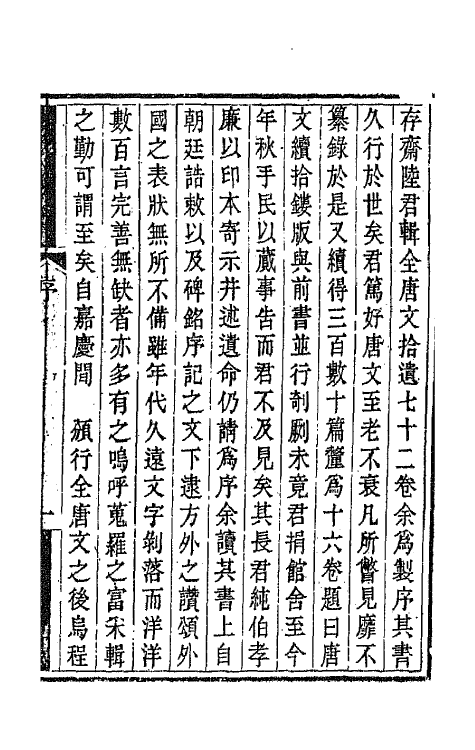 存齋陸君輯全唐文拾遺七十二卷余爲製序其書
久行於世矣君篤好唐文至老不衰凡所瞥見靡不
纂錄於是又續得三百數十篇釐爲十六卷題曰唐
文續拾鏤版與前書並行剞劂未竟君捐館舍至今
年秋手民以蕆事告而君不及見矣其長君純伯孝
廉以印本寄示并述遺命仍請爲序余讀其書上自
朝廷誥敕以及碑銘序記之文下逮方外之讚頌外
國之表狀無所不備雖年代久遠文字剝落而洋洋
數百言完善無缺者亦多有之嗚呼蒐羅之富采輯
之勤可謂至矣自嘉慶間　頒行全唐文之後烏程
序
一